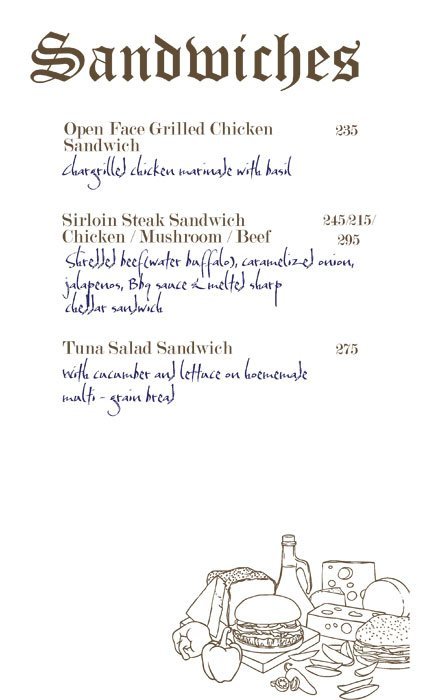 Sandwiches
Open Face Grilled Chicken 235
Sandwich
Chargrilled chicken marinade with basil
Sirloin Steak Sandwich 245/215/
Chicken / Mushroom / Beef 295
Shredded beef(water buffalo), caramelized onion,
jalapenos, Bbq sauce & melted sharp
cheddar sandwich
Tuna Salad Sandwich 275
With cucumber and lettuce on hoememade
multi - grain bread